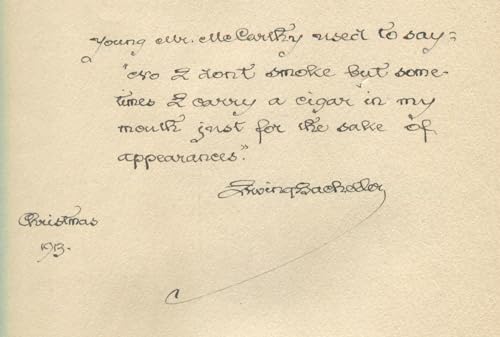 Young Mr. McCarthy used to say:
"No I dont smoke but some-
times I carry a cigar in my
mouth just for the sake of
appearances."
Irving Bacheller
Christmas
1913.